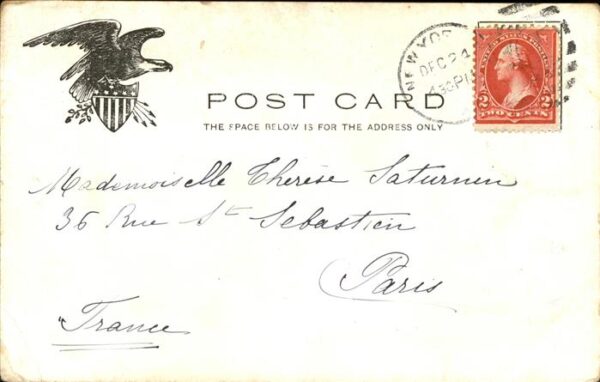 NEW YOR
DEC 24
POST CARD
THE FPACE BELOW IS FOR THE ADDRESS ONLY
2 2
TWO CENTS
Mademoiselle Therèse Saturnin
36 Rue St Sebastien
Paris
France